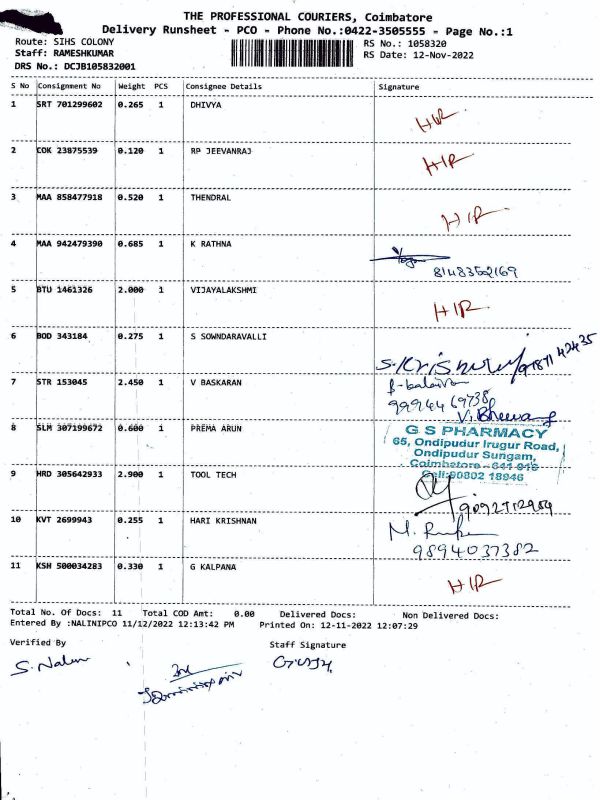 THE PROFESSIONAL COURIERS, Coimbatore
Delivery Runsheet - PCO - Phone No.:0422-3505555 - Page No.:1
Route: SIHS COLONY RS No.: 1058320
Staff: RAMESHKUMAR RS Date: 12-Nov-2022
DRS No.: DCJB105832001
S No Consignment No Weight PCS Consignee Details Signature
1 SRT 701299602 0.265 1 DHIVYA HIR
2 COK 23875539 0.120 1 RP JEEVANRAJ HIR
3 MAA 858477918 0.520 1 THENDRAL HIR
4 MAA 942479390 0.685 1 K RATHNA
8148352169
5 BTU 1461326 2.000 1 VIJAYALAKSHMI HIR
6 BOD 343184 0.275 1 S SOWNDARAVALLI
7 STR 153045 2.450 1 V BASKARAN
9994469738
8 SLM 307199672 0.600 1 PREMA ARUN
G S PHARMACY
65, Ondipudur Irugur Road,
Ondipudur Sungam,
Coimbatore - 641 016
Cell:90802 18946
9 HRD 305642933 2.900 1 TOOL TECH
10 KVT 2699943 0.255 1 HARI KRISHNAN
9894037382
11 KSH 500034283 0.330 1 G KALPANA HIR
Total No. Of Docs: 11 Total COD Amt: 0.00 Delivered Docs: Non Delivered Docs:
Entered By :NALINIPCO 11/12/2022 12:13:42 PM Printed On: 12-11-2022 12:07:29
Verified By Staff Signature
S. Nalin